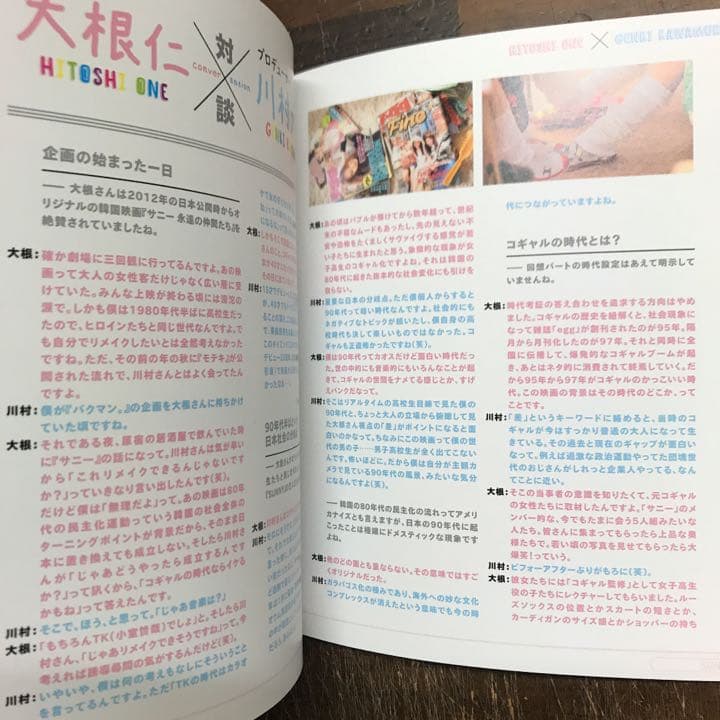 大根仁
HITOSHI ONE
対談
conver
session
プロデュー
川村
企画の始まった一日
── 大根さんは2012年の日本公開時からオ
リジナルの韓国映画『サニー 永遠の仲間たち』を
絶賛されていましたね。
大根：確か劇場に三回観に行ってるんですよ。あの映
画って大人の女性客だけじゃなく広い層に受
けていた。みんな上映が終わる頃には滂沱の
涙で。しかも僕は1980年代半ばに高校生だっ
たので、ヒロインたちと同じ世代なんですよ。で
も自分でリメイクしたいとは全然考えなかった
ですね。ただ、その前の年の秋に『モテキ』が公
開された流れで、川村さんとはよく会ってたん
ですよ。
川村：僕が『バクマン。』の企画を大根さんに持ちかけ
ていた頃ですね。
大根：それである夜、原宿の居酒屋で飲んでいた時
に『サニー』の話になって。川村さんは気が早い
から「これリメイクできるんじゃないです
か？」っていきなり言い出したんです（笑）。
だけど僕は「無理だよ」って。あの映画は80年
代の民主化運動っていう韓国の社会全体の
ターニングポイントが背景だから、そのまま日
本に置き換えても成立しない。そしたら川村さ
んが「じゃあどうやったら成立するんです
か？」って訊くから、「コギャルの時代ならイケる
かもね」って答えたんです。
川村：そこで、ほう、と思って。「じゃあ音楽は？」
大根：「もちろんTK（小室哲哉）でしょ」と。そしたら川
村さん、「じゃあリメイクできそうですね」って。今
考えれば誘導尋問の気がするんだけど（笑）。
川村：いやいや、僕は何の考えもなしにそういうこと
を言ってるんですよ。ただ「TKの時代はカラオ
HITOSHI ONE × GENKI KAWAMUR
大根：あの頃はバブルが弾けてから数年経って、世紀
末の不穏なムードもあったし、先の見えない不
安や恐怖をたくましくサヴァイヴする感覚が若
い子たちに生まれたと思う。象徴的な現象が女
子高生のコギャル化ですよね。それは韓国の
80年代に起きた抜本的な社会変化にも引けを
取らない。
川村：重要な日本の分岐点。ただ僕個人からすると
90年代って暗い時代なんですよ。社会的にも
ネガティブなトピックが続いたし、僕自身の高
校時代も決して楽しいものではなかった。コ
ギャルも正直怖かったですね（笑）。
大根：僕は90年代ってカオスだけど面白い時代だっ
た。世の中的にも音楽的にもいろんなことが起
きて、コギャルの世間をナメてる感じとか、すげ
えパンクだなって。
川村：そこはリアルタイムの高校生目線で見た僕
の90年代と、ちょっと大人の立場から俯瞰して見
てた大根さん視点の「差」がポイントになると面
白いのかなって。ちなみにこの映画って僕の世
代の男の子……男子高校生が全く出てこない
んです。怖いほどに。だから僕は自分が主観カ
メラで見ている90年代の風景、みたいな気分
になるんですよ（笑）。
── 韓国の80年代の民主化の流れってアメリ
カナイズとも言えますが、日本の90年代に起
こったことは極端にドメスティックな現象です
よね。
大根：他のどの国とも重ならない。その意味ではすご
くオリジナルだった。
川村：ガラパゴス化の極みであり、海外への妙な文化
コンプレックスが消えたという意味でも今の時
代につながっていますよね。
コギャルの時代とは？
── 回想パートの時代設定はあえて明示して
いませんね。
大根：時代考証の答え合わせを追求する方向はやめ
ました。コギャルの歴史を紐解くと、社会現象に
なって雑誌「egg」が創刊されたのが95年。隔
月から月刊化したのが97年。それと同時に全
国に伝播して、爆発的なコギャルブームが起
き、あとはネタ的に消費されて終焉していく。だ
から95年から97年がコギャルのかっこいい時
代。この映画の背景はその時代のどこか、って
ことです。
川村：「差」というキーワードに絡めると、当時のコ
ギャルが今はすっかり普通の大人になって生
きている。その過去と現在のギャップが面白い
なって。例えば過激な政治運動やってた団塊世
代のおじさんがしれっと企業人やってる、なん
てことに近い。
大根：そこの当事者の意識を知りたくて、元コギャル
の女性たちに取材したんですよ。「サニー」のメ
ンバー的な、今でもたまに会う5人組みたいな
人たち。皆さんに集まってもらったら上品な奥
様たちで。若い頃の写真を見せてもらったら大
爆笑！っていう。
川村：ビフォーアフターぶりがもろに（笑）。
大根：彼女たちには「コギャル監修」として女子高生
役の子たちにレクチャーしてもらいました。ルー
ズソックスの位置とかスカートの短さとか、
カーディガンのサイズ感とかショッパーの持ち